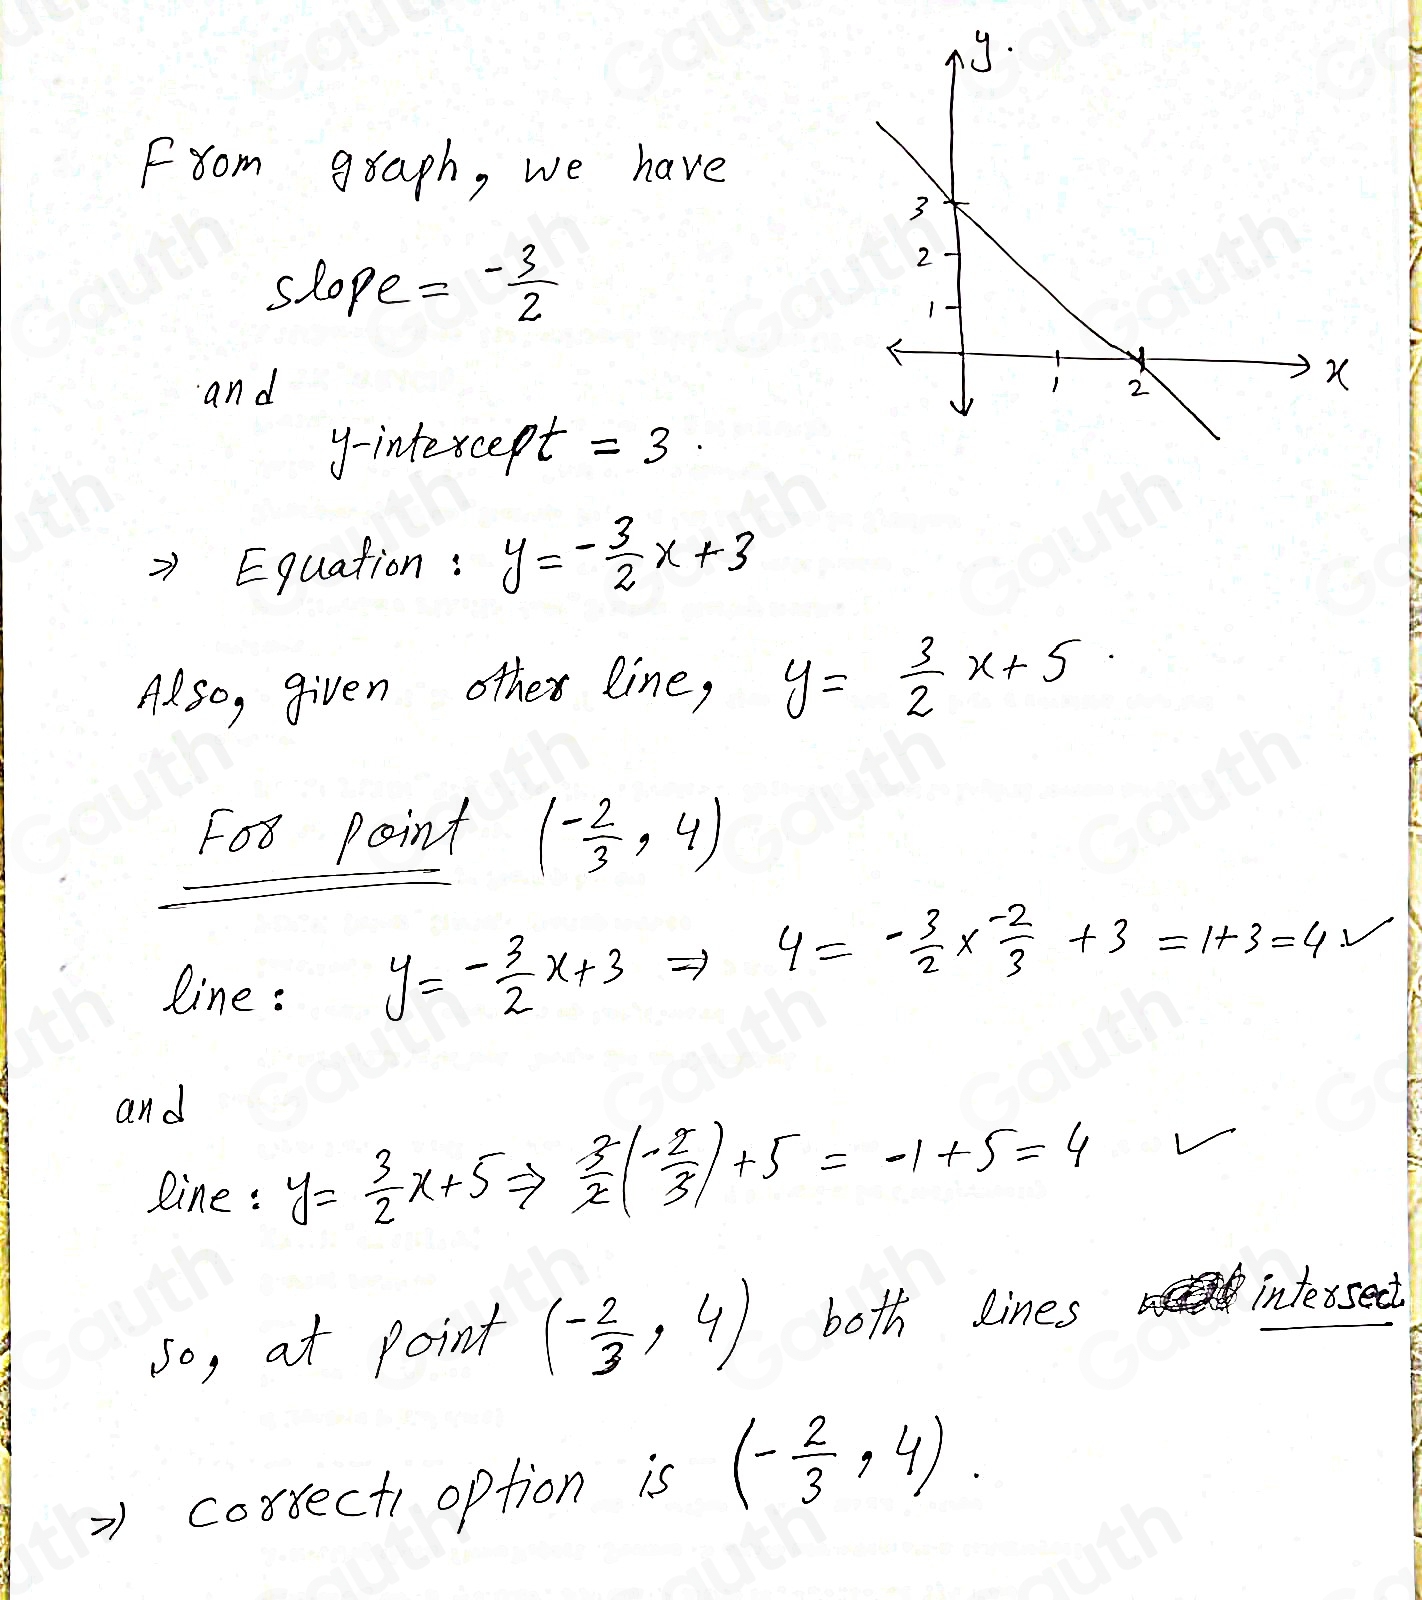 y.
From graph, we have
3
slope = -3/2
2
1
and
1 2 x
y-intercept = 3.
⇒ Equation : y = -3/2 x + 3
Also, given other line, y = 3/2 x + 5.
For point (-2/3, 4)
line : y = -3/2 x + 3 ⇒ 4 = -3/2 × -2/3 + 3 = 1 + 3 = 4 ✓
and
line : y = 3/2 x + 5 ⇒ 3/2 (-2/3) + 5 = -1 + 5 = 4 ✓
so, at point (-2/3, 4) both lines intersect
⇒ correct option is (-2/3, 4).
Gauth